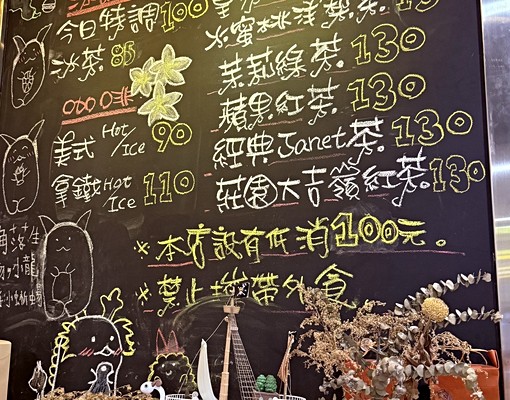 今日特調100
冰茶 85
美式 Hot/Ice 90
拿鐵 Hot/Ice 110
水蜜桃淺葉茶 13
茉莉綠茶 130
蘋果紅茶 130
經典Janet茶 130
莊園大吉嶺紅茶 130
※本店設有低消100元.
※禁止攜帶外食
角落生
小龍